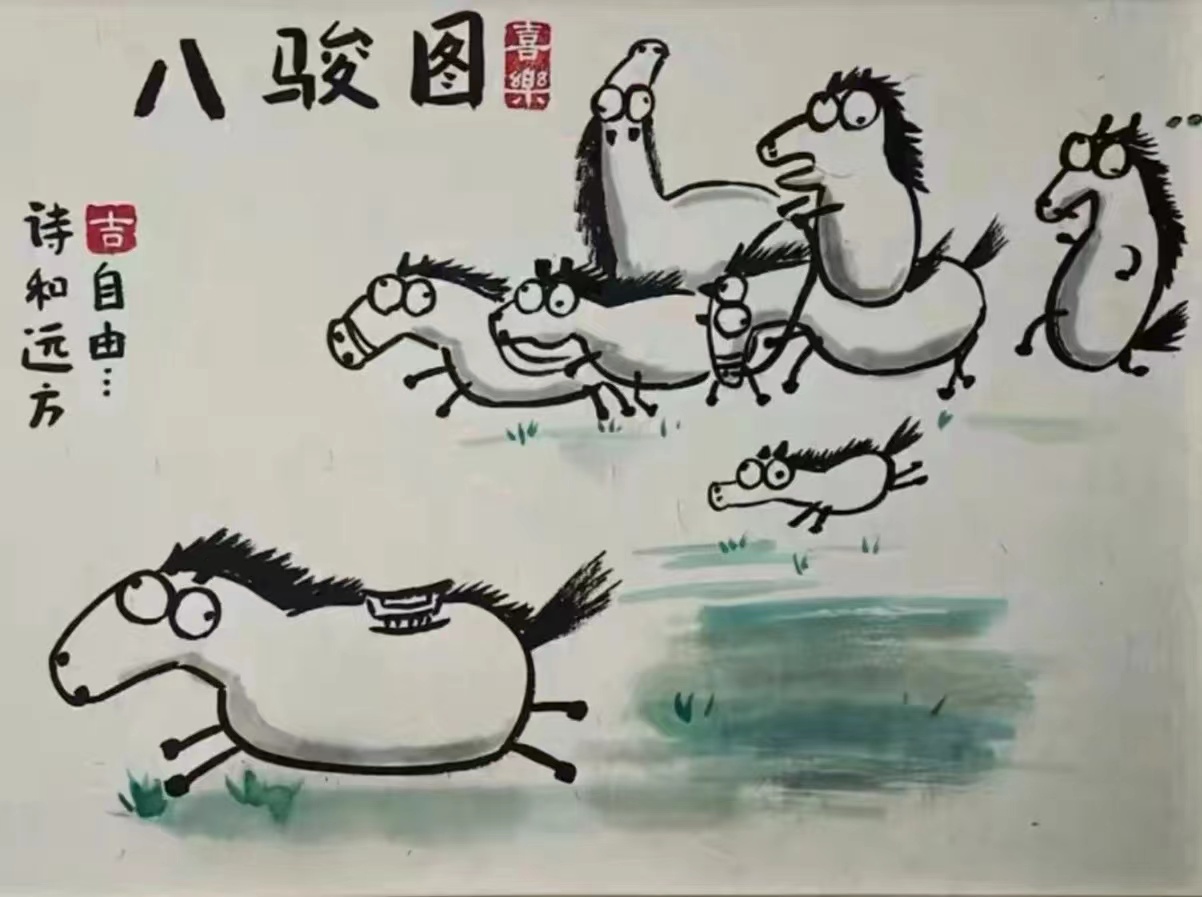 八骏图
喜樂
吉
自由…
诗和远方